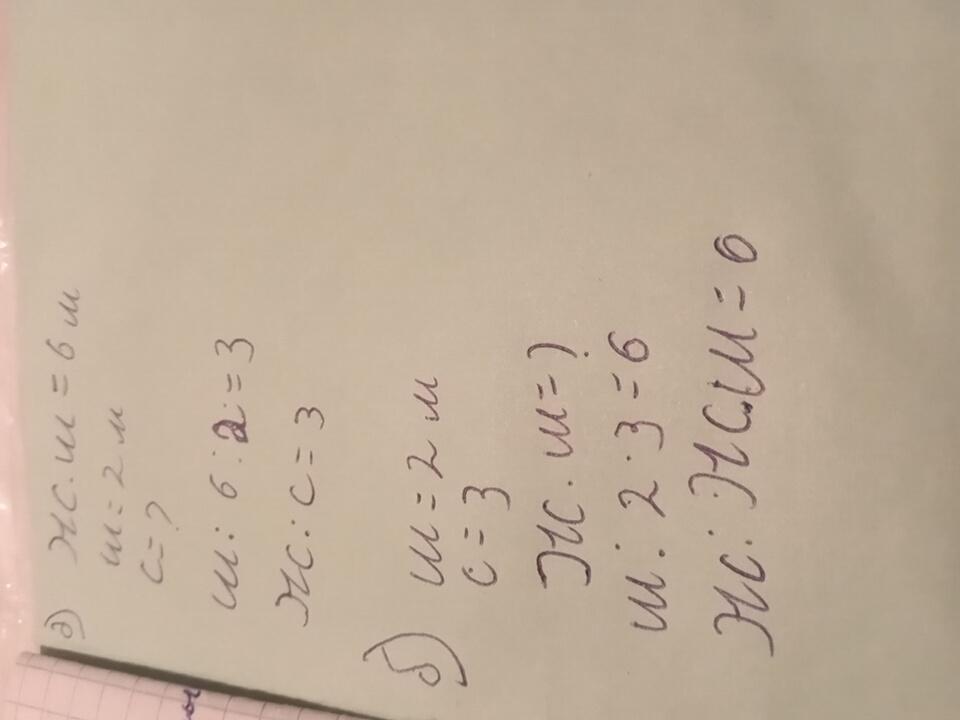 а) Ж.ш = 6 м
ш = 2 м
с = ?
ш: 6 : 2 = 3
Ж: с = 3
б) ш = 2 м
с = 3
Ж. ш = ?
ш: 2 · 3 = 6
Ж: Ж.ш = 6